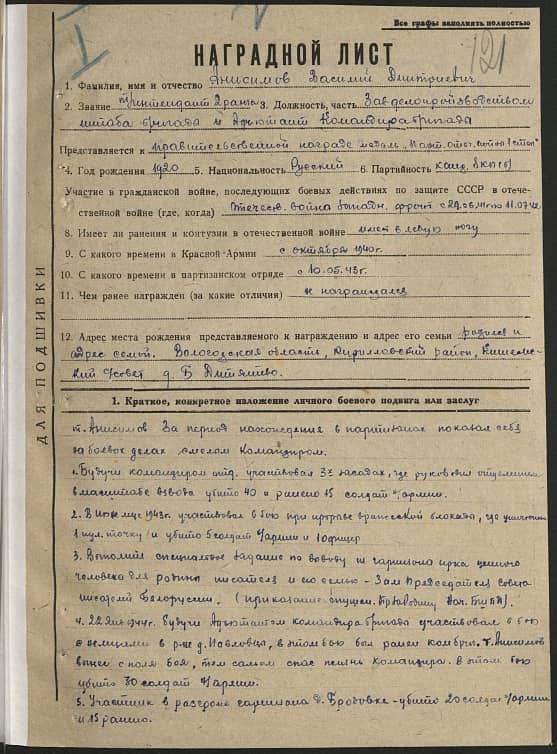 Все графы заполнять полностью
121
НАГРАДНОЙ ЛИСТ
1. Фамилия, имя и отчество Анисимов Василий Дмитриевич
2. Звание Интендант 2 ранга 3. Должность, часть Зав делопроизводством
штаба бригады и Адъютант Командира бригады
Представляется к правительственной награде медаль „Парт. отеч. войны I степ"
4. Год рождения 1920 5. Национальность Русский 6. Партийность канд. ВКП(б)
Участие в гражданской войне, последующих боевых действиях по защите СССР в отече-
ственной войне (где, когда) Отечеств. война Западн. фронт с 29.06.41г по 11.07.42
8. Имеет ли ранения и контузии в отечественной войне имеет в левую ногу
9. С какого времени в Красной Армии с октября 1940г.
10. С какого времени в партизанском отряде с 10.05.43г.
11. Чем ранее награжден (за какие отличия) не награждался
12. Адрес места рождения представляемого к награждению и адрес его семьи родился и
адрес семьи. Вологодская область, Кирилловский район,
с/совет д. Б
ДЛЯ ПОДШИВКИ
1. Краткое, конкретное изложение личного боевого подвига или заслуг
т. Анисимов За период нахождения в партизанах показал себя
в боевых делах смелым Командиром.
1. Будучи командиром отд. участвовал 3х засадах, где руководил отделением
в масштабе взвода убито 40 и ранено 15 солдат Н/армии.
2. В Июне м-це 1943г. участвовал в бою при прорыве вражеской блокады, где уничтожил
1 пул. точку и убито 5 солдат Н/армии и 1 офицер
3. Выполнил специальное задание по выводу из гарнизона врага ценного
человека для родины писателя и его семью - Зам Председателя союза
писателей Белоруссии.
4. 22 Янв 1944г. Будучи Адъютантом командира бригады участвовал в бою
с немцами в р-не д. в этом бою был ранен комбриг. т. Анисимов
вынес с поля боя, тем самым спас жизнь командира. В этом бою
убито 30 солдат Н/армии.
5. Участник в разгроме гарнизона д. Брововка - убито 20 солдат Н/армии
и 15 ранено.